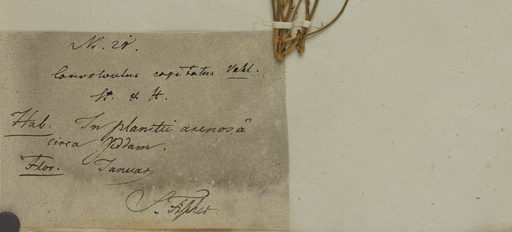 No. 28.
Convolvulus capitatus Vahl.
St. & H.
Hab. In planitie arenosâ
circa Djddam.
Flor. Januar.
S. Fischer